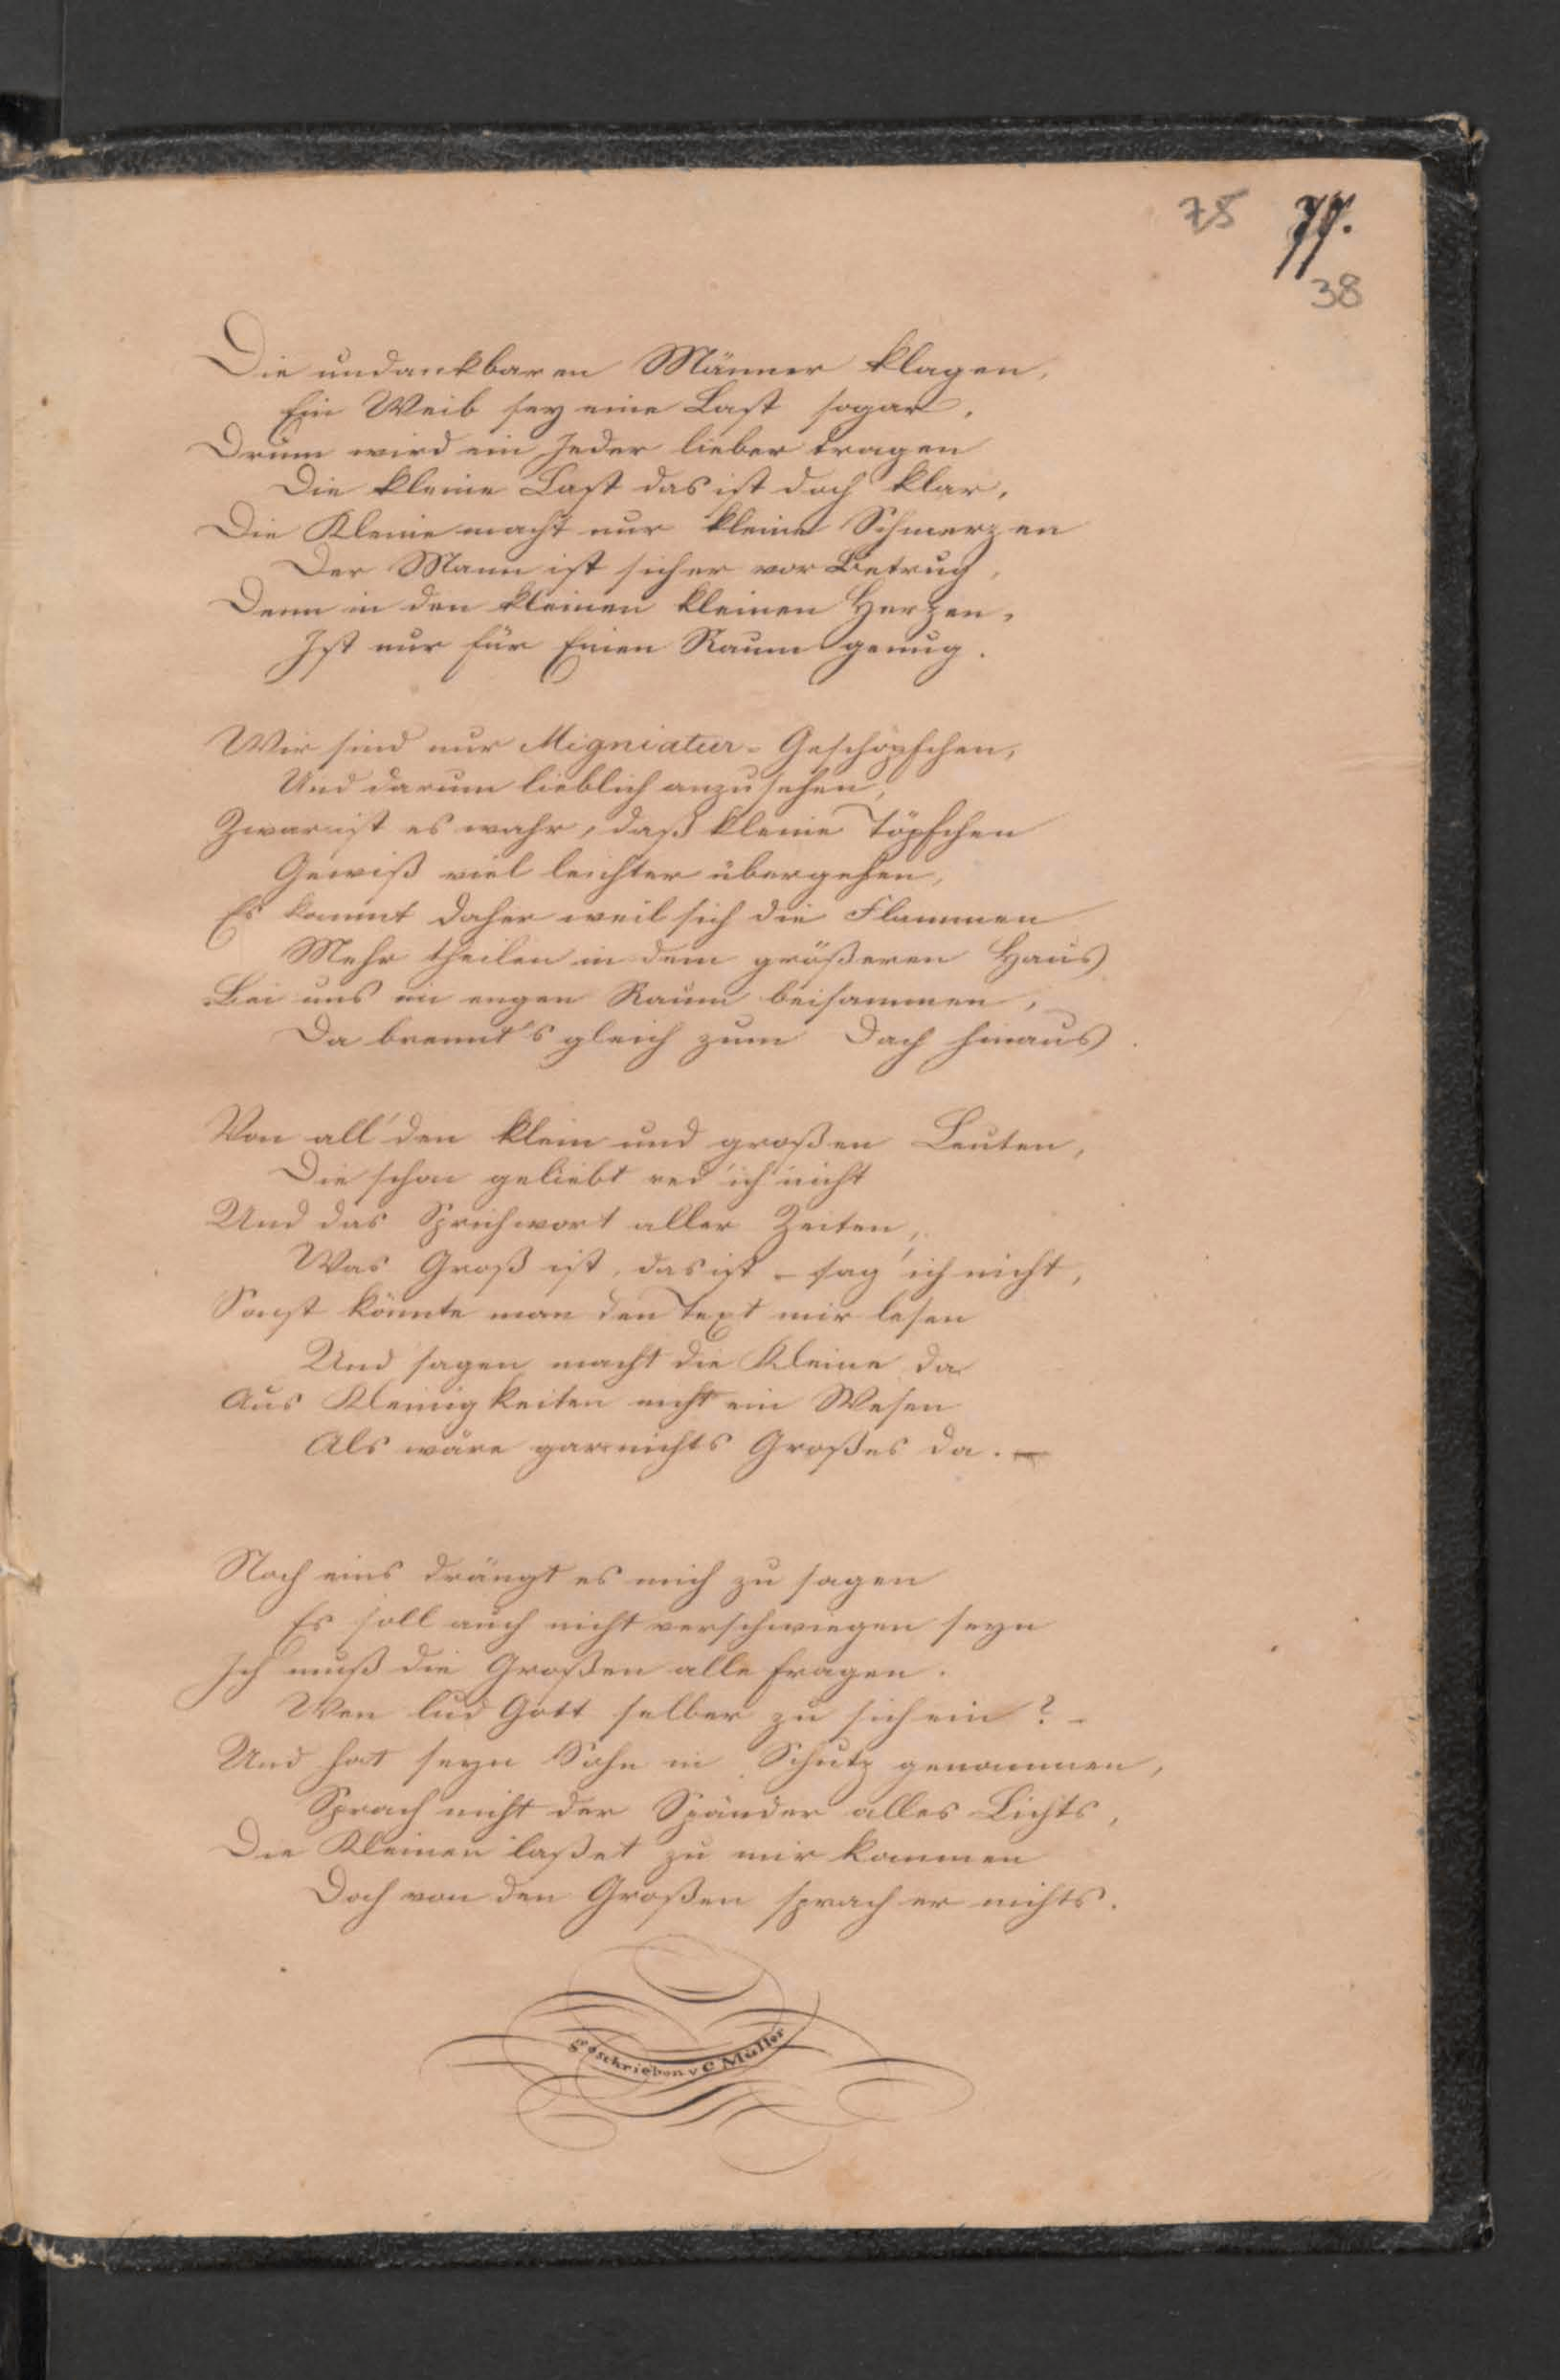 75 77.
38
Die undankbaren Männer klagen,
Ein Weib sey eine Last sogar,
Drum wird ein Jeder lieber tragen
Die kleine Last das ist doch klar,
Die Kleine macht nur kleine Schmerzen
Der Mann ist sicher vor Betrug,
Denn in den kleinen kleinen Herzen,
Ist nur für Einen Raum genug.
Wir sind nur Migniatur-Geschöpfchen,
Und darum lieblich anzusehen,
Zwar ist es wahr, daß kleine Töpfchen
Gewiß viel leichter übergehen,
Es kommt daher weil sich die Flammen
Mehr theilen in dem größeren Haus
Bei uns im engen Raum beisammen,
Da brennt's gleich zum Dach hinaus.
Von all' den klein und großen Leuten,
Die schon geliebt red' ich nicht
Und das Sprichwort aller Zeiten,
Was Groß ist, das ist - sag' ich nicht,
Sonst könnte man den Text mir lesen
Und sagen macht die Kleine da
Aus Kleinigkeiten nicht ein Wesen
Als wäre gar nichts Großes da. -
Noch eins drängt es mich zu sagen
Es soll auch nicht verschwiegen seyn
Ich muß die Großen alle fragen.
Wen lud Gott selber zu sich ein? -
Und hat seyn Sohn in Schutz genommen,
Sprach nicht der Spänder alles Lichts,
Die Kleinen laßet zu mir kommen
Doch von den Großen sprach er nichts.
geschrieben v C Müller